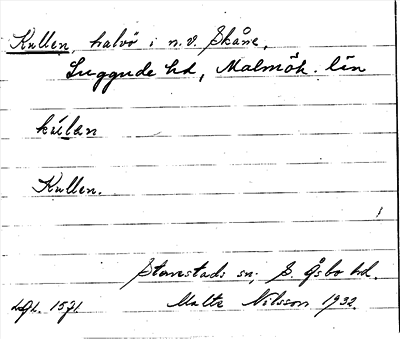 Kullen, halvö i n.v. Skåne,
Luggude hd, Malmöh. län
kúlan
Kullen.
Starstads sn; S. Åsbo hd.
Malte Nilsson 1932.
LGL. 1571.